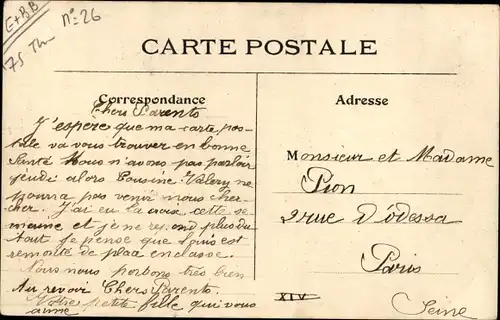 E+BB
75 Th
N°: 26
CARTE POSTALE
Correspondance
Chers Parents
J'espère que ma carte pos-
tale va vous trouver en bonne
Santé Nous n'avons pas parloir
jeudi alors Cousine Valery ne
pourra pas venir nous cher-
cher. J'ai eu la croix cette se-
maine et je ne répond plus du
tout je pense que Louis est
remonté de plaa en classe.
Nous nous portons très bien
Au revoir Chers Parents.
Votre petite fille qui vous
aime
Adresse
Monsieur et Madame
Pion
2 rue D'odessa
Paris
XIV
Seine